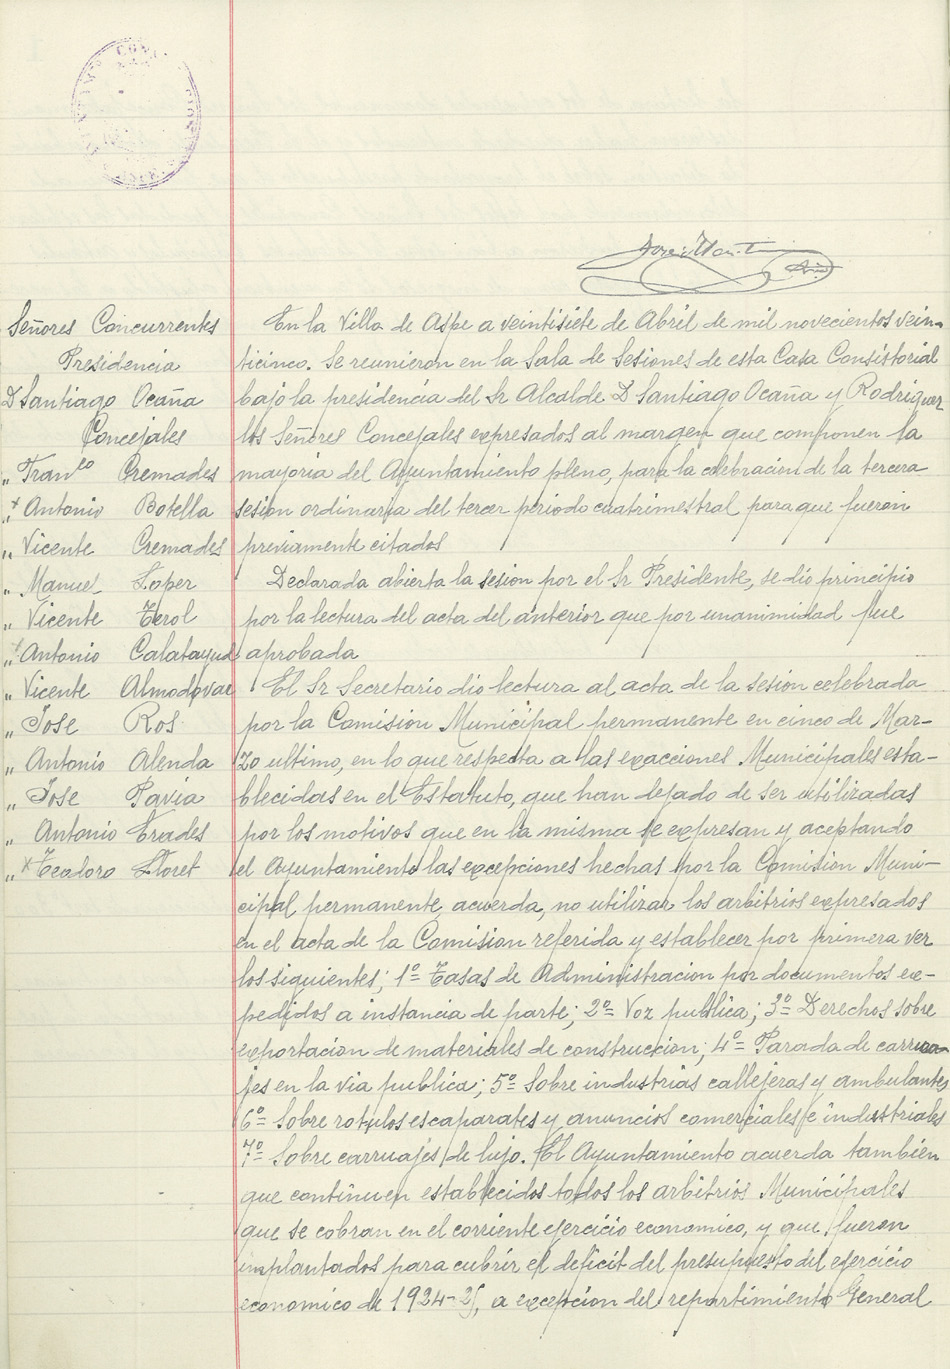 José Martin
Señores Concurrentes
Presidencia
D Santiago Ocaña
Concejales
„ Fran^co Cremades
„ Antonio Botella
„ Vicente Cremades
„ Manuel Soper
„ Vicente Terol
„ Antonio Calatayud
„ Vicente Almodovar
„ Jose Ros
„ Antonio Alenda
„ Jose Pavia
„ Antonio Erades
„ Teodoro Lloret
En la Villa de Aspe a veintisiete de Abril de mil novecientos vein-
ticinco. Se reunieron en la Sala de Sesiones de esta Casa Consistorial
bajo la presidencia del Sr Alcalde D Santiago Ocaña y Rodriguez
los Señores Concejales expresados al margen que componen la
mayoria del Ayuntamiento pleno, para la celebracion de la tercera
sesion ordinaria del tercer periodo cuatrimestral para que fueron
previamente citados
Declarada abierta la sesion por el Sr Presidente, se dio principio
por la lectura del acta del anterior que por unanimidad fue
aprobada
El Sr Secretario dio lectura al acta de la sesion celebrada
por la Comision Municipal permanente en cinco de Mar-
zo ultimo, en lo que respecta a las exacciones Municipales esta-
blecidas en el Estatuto, que han dejado de ser utilizadas
por los motivos que en la misma se expresan y aceptando
el Ayuntamiento las excepciones hechas por la Comision Muni-
cipal permanente, acuerda, no utilizar los arbitrios expresados
en el acta de la Comision referida y establecer por primera vez
los siguientes; 1º Tasas de Administracion por documentos ex-
pedidos a instancia de parte; 2º Voz publica; 3º Derechos sobre
exportacion de materiales de construccion; 4º Parada de carrua-
jes en la via publica; 5º Sobre industrias callejeras y ambulantes
6º Sobre rotulos escaparates y anuncios comerciales e industriales
7º Sobre carruajes de lujo. El Ayuntamiento acuerda tambien
que continuen establecidos todos los arbitrios Municipales
que se cobran en el corriente ejercicio economico, y que fueron
implantados para cubrir el deficit del presupuesto del ejercicio
economico de 1924-25, a excepcion del repartimiento General